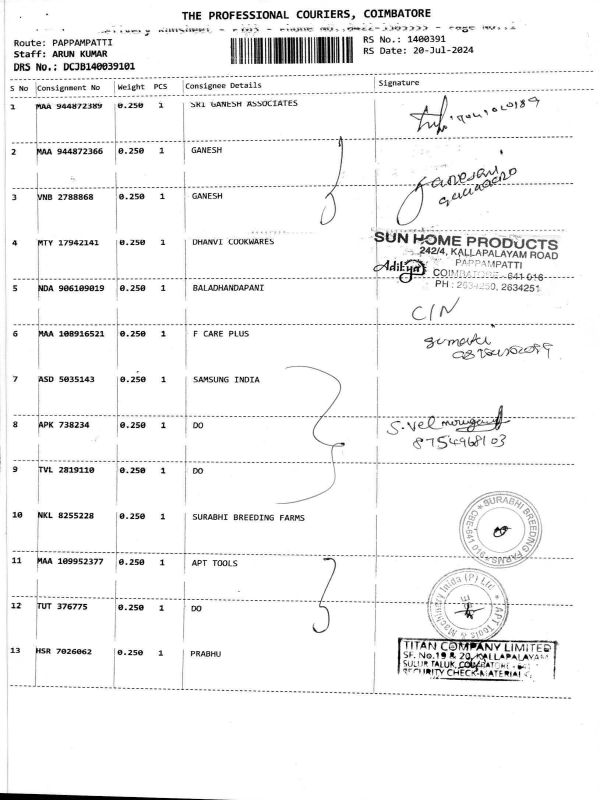 THE PROFESSIONAL COURIERS, COIMBATORE
Route: PAPPAMPATTI
RS No.: 1400391
Staff: ARUN KUMAR
RS Date: 20-Jul-2024
DRS No.: DCJB140039101
S No Consignment No Weight PCS Consignee Details Signature
1 MAA 944872389 0.250 1 SRI GANESH ASSOCIATES
2 MAA 944872366 0.250 1 GANESH
3 VNB 2788868 0.250 1 GANESH
4 MTY 17942141 0.250 1 DHANVI COOKWARES
SUN HOME PRODUCTS
242/4, KALLAPALAYAM ROAD
PAPPAMPATTI
Aditya
COIMBATORE - 641 016
PH : 2634250, 2634251
5 NDA 906109019 0.250 1 BALADHANDAPANI
C/N
6 MAA 108916521 0.250 1 F CARE PLUS
7 ASD 5035143 0.250 1 SAMSUNG INDIA
8 APK 738234 0.250 1 DO
S. Vel murugan
8754968103
9 TVL 2819110 0.250 1 DO
10 NKL 8255228 0.250 1 SURABHI BREEDING FARMS
SURABHI BREEDING FARMS
11 MAA 109952377 0.250 1 APT TOOLS
12 TUT 376775 0.250 1 DO
13 HSR 7026062 0.250 1 PRABHU
TITAN COMPANY LIMITED
SF. No.19 & 20, KALLAPALAYAM
SULUR TALUK, COIMBATORE
SECURITY CHECK-MATERIAL